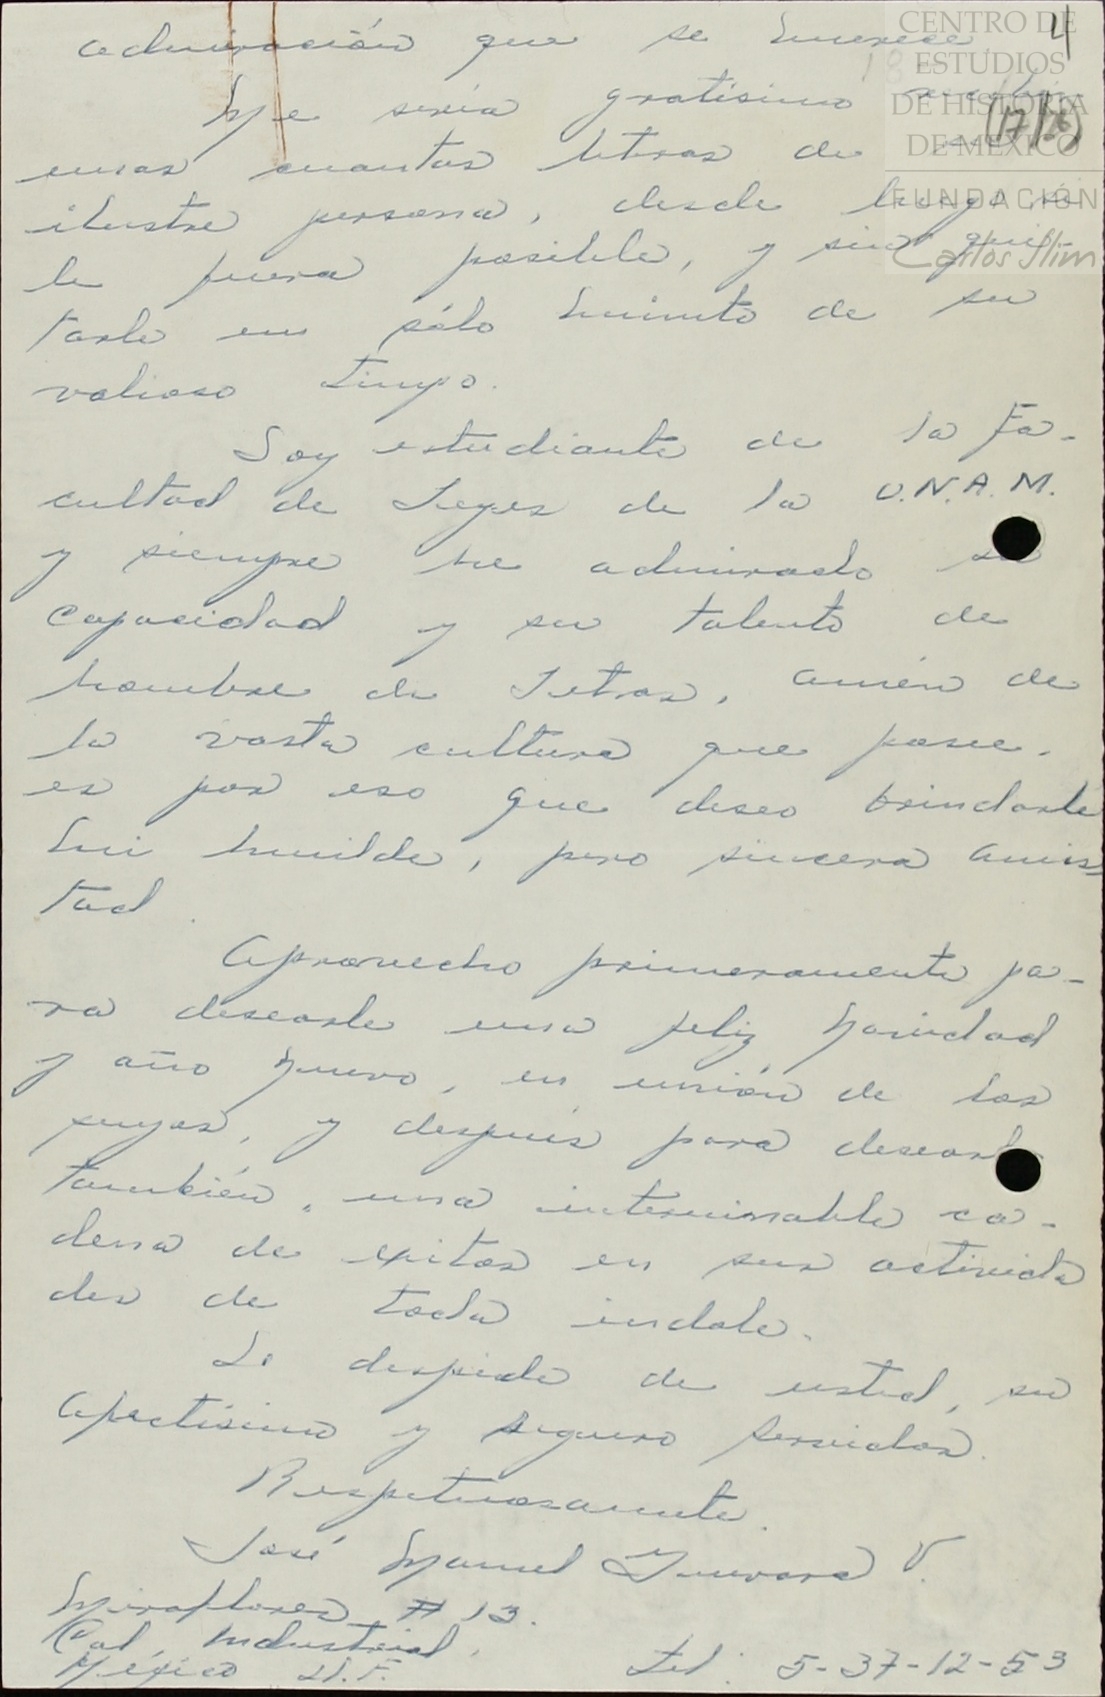 admiración que se merece.
4
CENTRO DE
ESTUDIOS
DE HISTORIA
DE MÉXICO
FUNDACIÓN
Carlos Slim
Me sería gratísimo recibir
unas cuantas letras de
ilustre persona, desde luego si
le fuera posible, y sin qui
tarle un sólo minuto de su
valioso tiempo.
Soy estudiante de la Fa-
cultad de Leyes de la U.N.A.M.
y siempre he admirado su
capacidad y su talento de
hombre de Letras, amén de
la vasta cultura que posee.
es por eso que deseo brindarle
mi humilde, pero sincera amis
tad.
Aprovecho primeramente pa-
ra desearle una feliz Navidad
y año nuevo, en unión de los
suyos, y después para desearle
también, una interminable ca-
dena de exitos en sus activida
des de toda indole.
Se despide de usted, su
afectísimo y seguro servidor.
Respetuosamente.
José Manuel Guevara V.
Miraflores # 13.
Col. Industrial,
México D.F.
Tel: 5-37-12-53